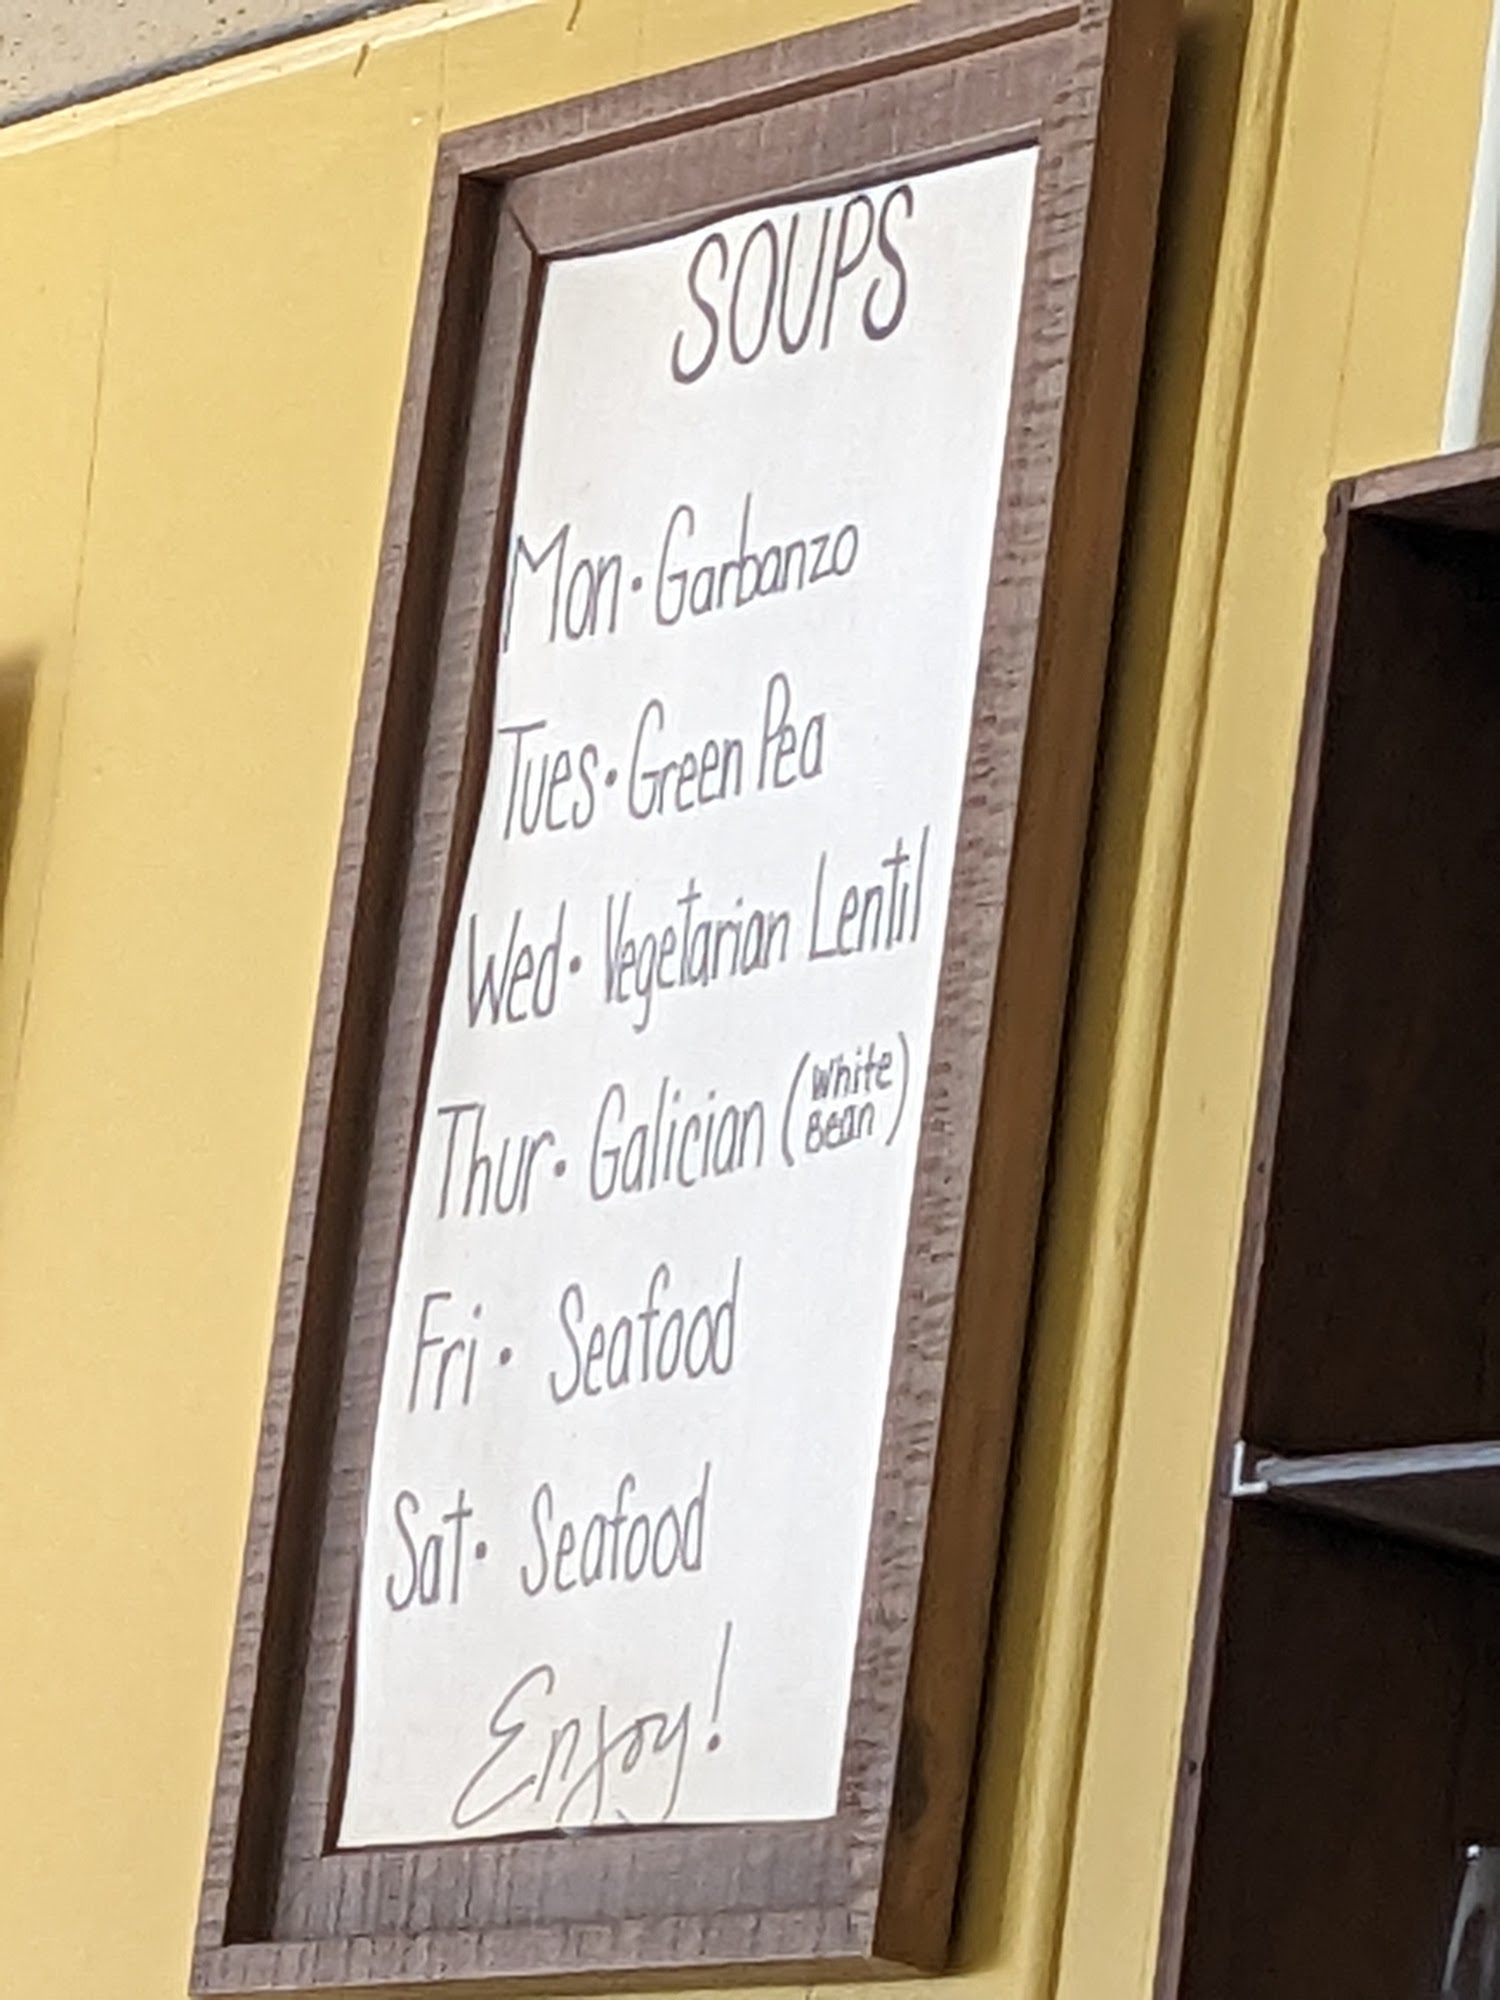 SOUPS
Mon · Garbanzo
Tues · Green Pea
Wed · Vegetarian Lentil
Thur · Galician (White
Bean)
Fri · Seafood
Sat · Seafood
Enjoy!